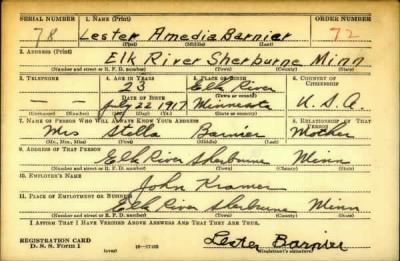 SERIAL NUMBER 1. NAME (Print) ORDER NUMBER
78 Lester Amedia Barnier 72
(First) (Middle) (Last)
2. ADDRESS (Print)
Elk River Sherburne Minn
(Number and street or R. F. D. number) (Town) (County) (State)
3. TELEPHONE 4. AGE IN YEARS 5. PLACE OF BIRTH 6. COUNTRY OF CITIZENSHIP
23 Elk River
DATE OF BIRTH (Town or county)
— — July 22 1917 Minnesota U.S.A.
(Exchange) (Number) (Mo.) (Day) (Yr.) (State or country)
7. NAME OF PERSON WHO WILL ALWAYS KNOW YOUR ADDRESS 8. RELATIONSHIP OF THAT PERSON
Mrs Stella Barnier Mother
(Mr., Mrs., Miss) (First) (Middle) (Last)
9. ADDRESS OF THAT PERSON
Elk River Sherburne Minn
(Number and street or R. F. D. number) (Town) (County) (State)
10. EMPLOYER'S NAME
John Kramer
11. PLACE OF EMPLOYMENT OR BUSINESS
Elk River Sherburne Minn
(Number and street or R. F. D. number) (Town) (County) (State)
I AFFIRM THAT I HAVE VERIFIED ABOVE ANSWERS AND THAT THEY ARE TRUE.
REGISTRATION CARD
D. S. S. Form 1 (over) Lester Barnier
(Registrant's signature)